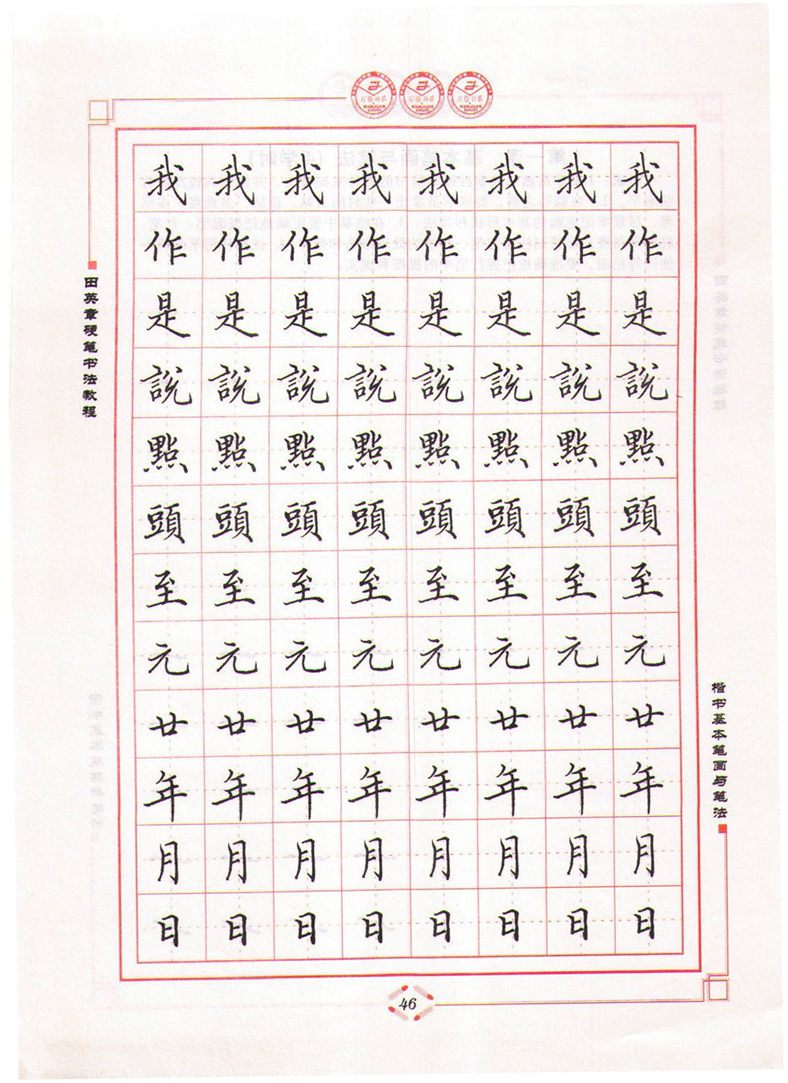 田英章硬笔书法教程
我我我我我我我我
作作作作作作作作
是是是是是是是是
說說說說說說說說
點點點點點點點點
頭頭頭頭頭頭頭頭
至至至至至至至至
元元元元元元元元
廿廿廿廿廿廿廿廿
年年年年年年年年
月月月月月月月月
日日日日日日日日
楷书基本笔画与笔法
46